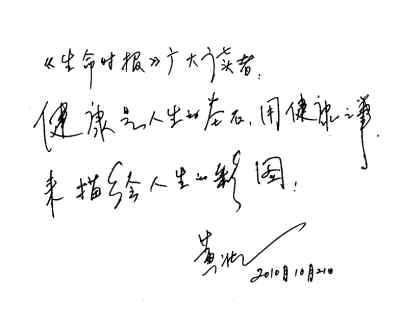 《生命时报》广大读者，
健康是人生的基石，用健康之笔，
来描绘人生的彩图！
黄
2010月10月21日